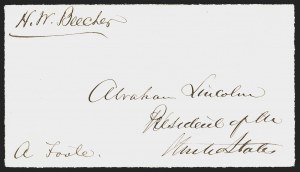 H. W. Beecher
Abraham Lincoln
President of the
United States
A Foole.